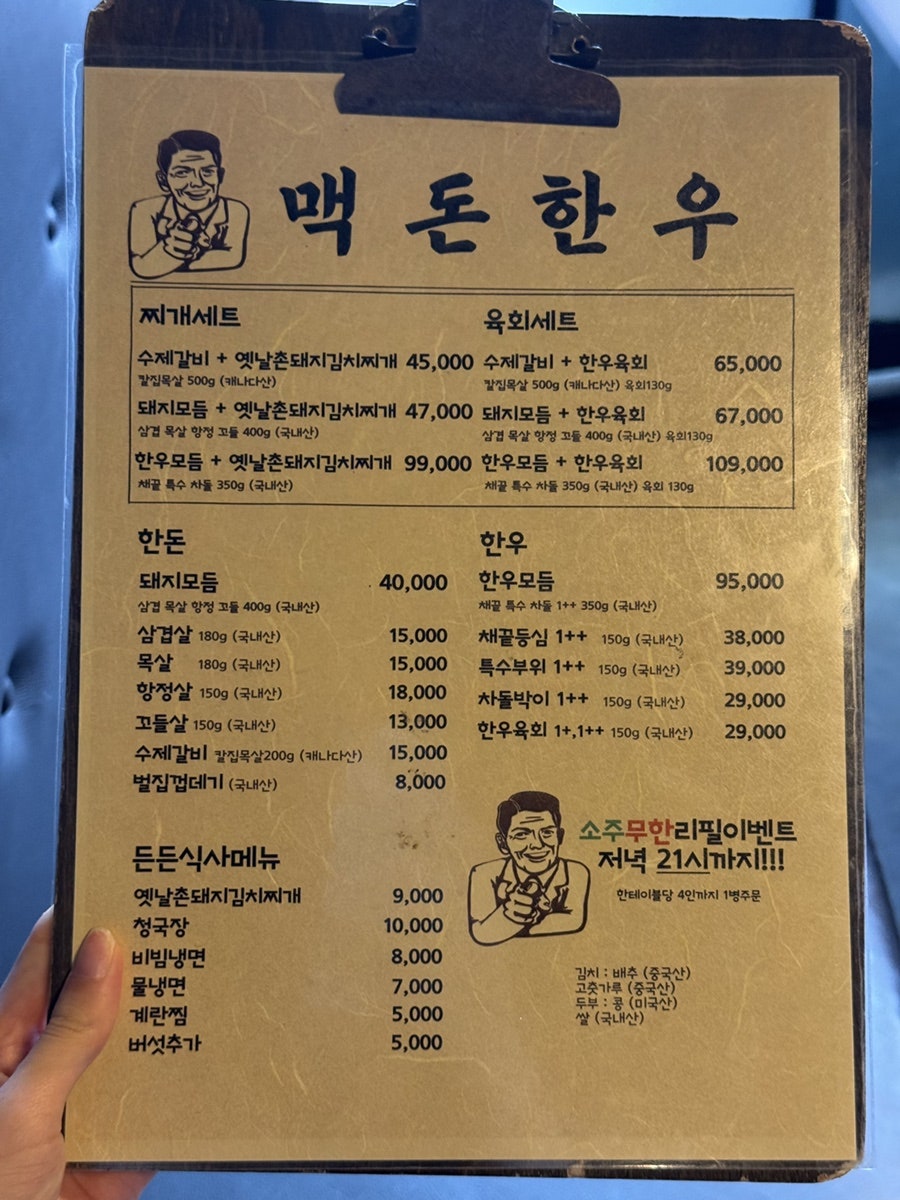 맥돈한우
찌개세트
수제갈비 + 옛날촌돼지김치찌개 45,000
칼집목살 500g (캐나다산)
돼지모듬 + 옛날촌돼지김치찌개 47,000
삼겹 목살 항정 꼬들 400g (국내산)
한우모듬 + 옛날촌돼지김치찌개 99,000
채끝 특수 차돌 350g (국내산)
육회세트
수제갈비 + 한우육회 65,000
칼집목살 500g (캐나다산) 육회130g
돼지모듬 + 한우육회 67,000
삼겹 목살 항정 꼬들 400g (국내산) 육회130g
한우모듬 + 한우육회 109,000
채끝 특수 차돌 350g (국내산) 육회 130g
한돈
돼지모듬 40,000
삼겹 목살 항정 꼬들 400g (국내산)
삼겹살 180g (국내산) 15,000
목살 180g (국내산) 15,000
항정살 150g (국내산) 18,000
꼬들살 150g (국내산) 13,000
수제갈비 칼집목살200g (캐나다산) 15,000
벌집껍데기 (국내산) 8,000
한우
한우모듬 95,000
채끝 특수 차돌 1++ 350g (국내산)
채끝등심 1++ 150g (국내산) 38,000
특수부위 1++ 150g (국내산) 39,000
차돌박이 1++ 150g (국내산) 29,000
한우육회 1+,1++ 150g (국내산) 29,000
든든식사메뉴
옛날촌돼지김치찌개 9,000
청국장 10,000
비빔냉면 8,000
물냉면 7,000
계란찜 5,000
버섯추가 5,000
소주무한리필이벤트
저녁 21시까지!!!
한테이블당 4인까지 1병주문
김치 : 배추 (중국산)
고춧가루 (중국산)
두부 : 콩 (미국산)
쌀 (국내산)